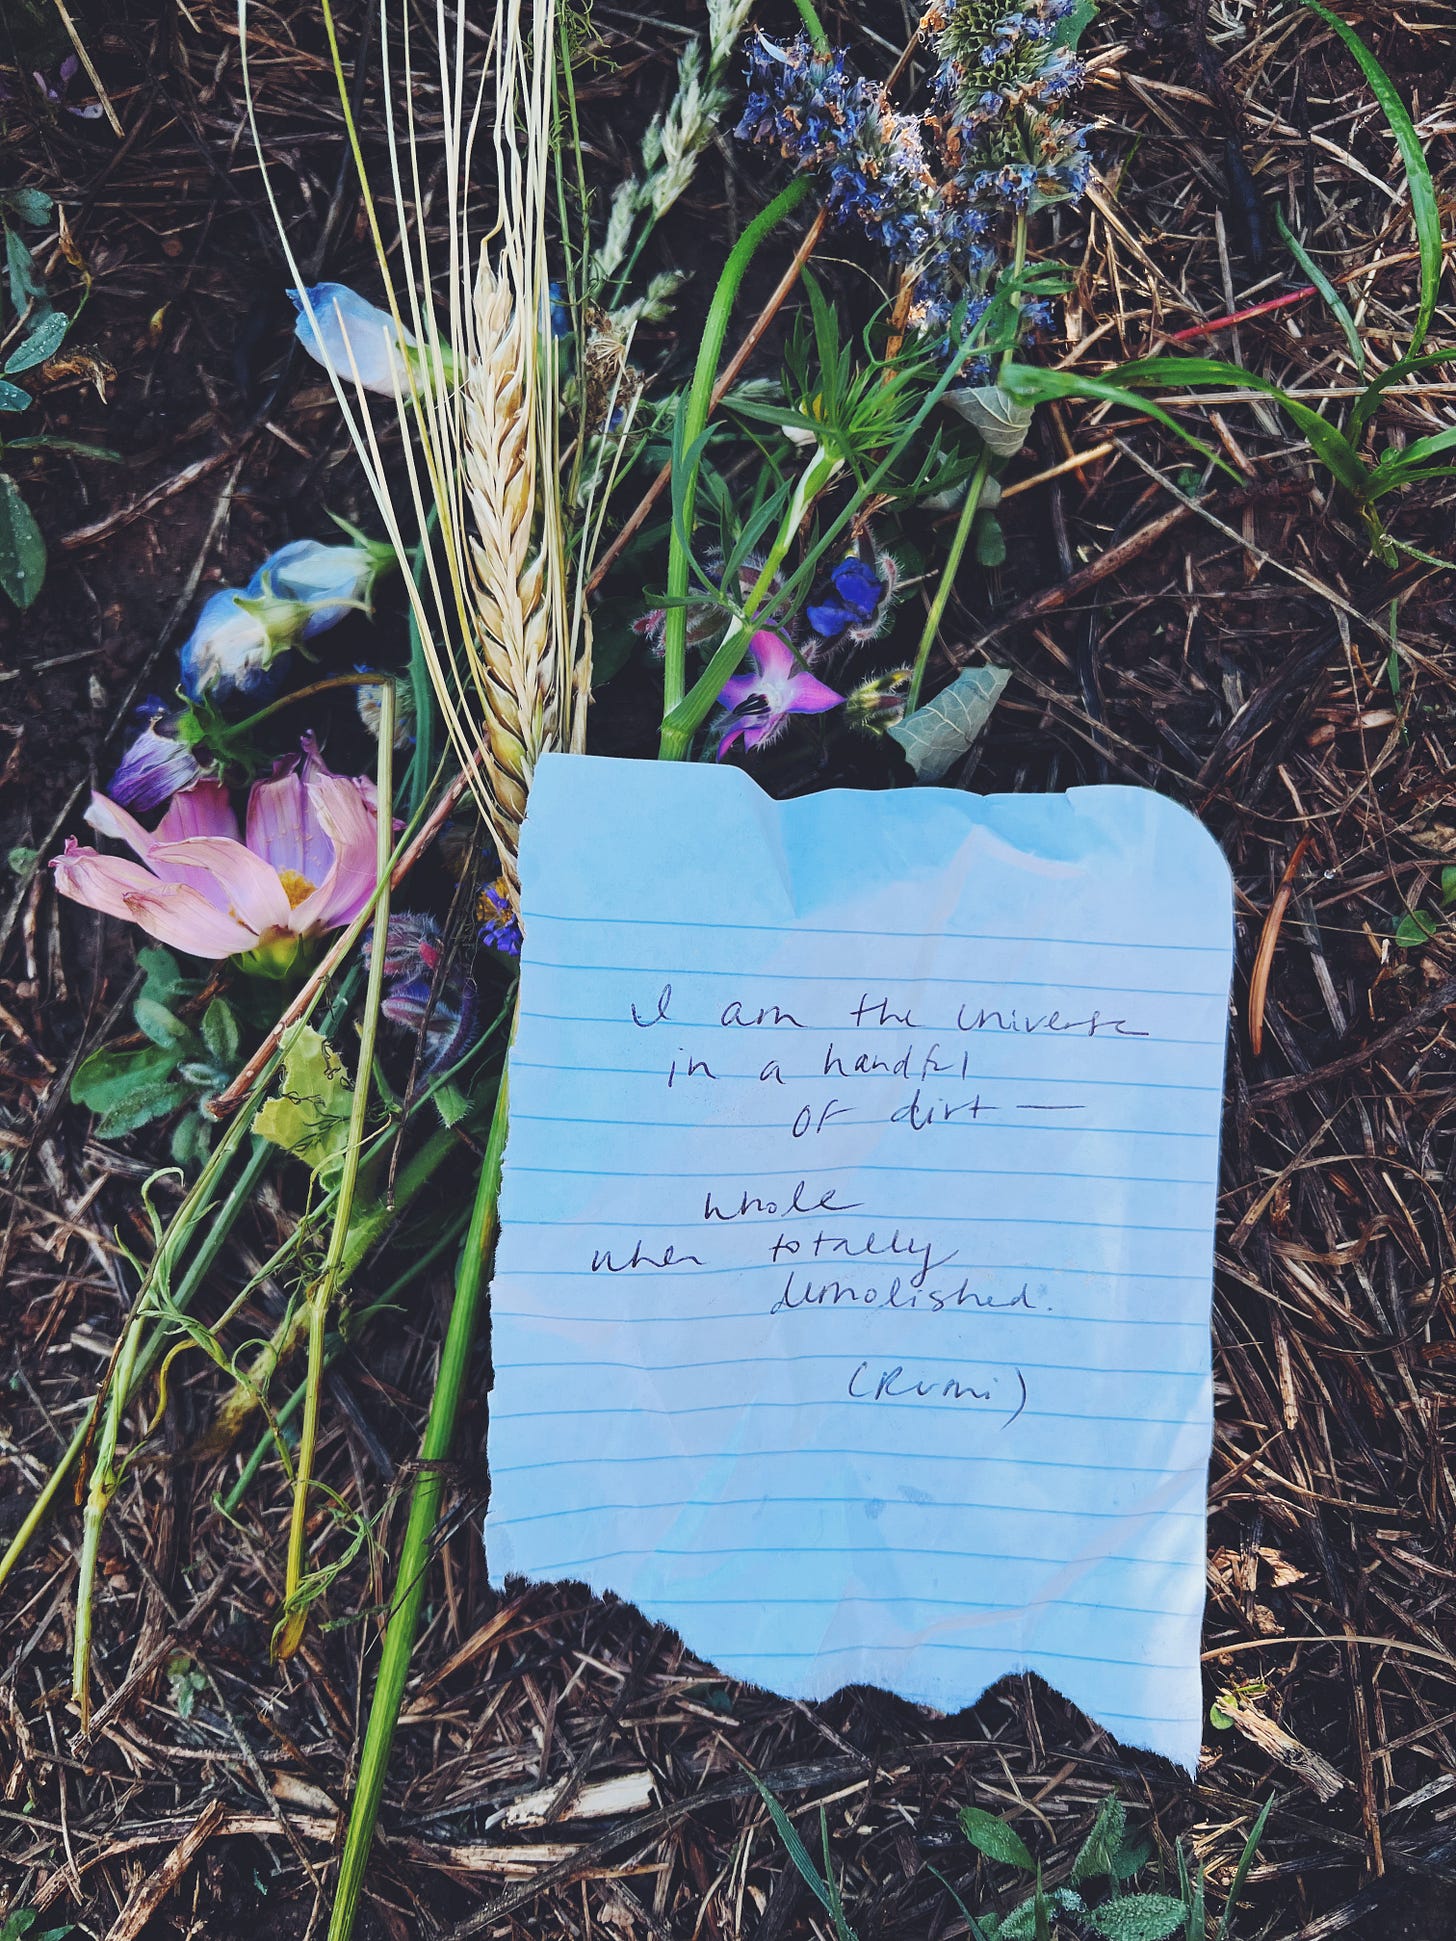 I am the universe
in a handful
of dirt —
whole
when totally
demolished.
(Rumi)